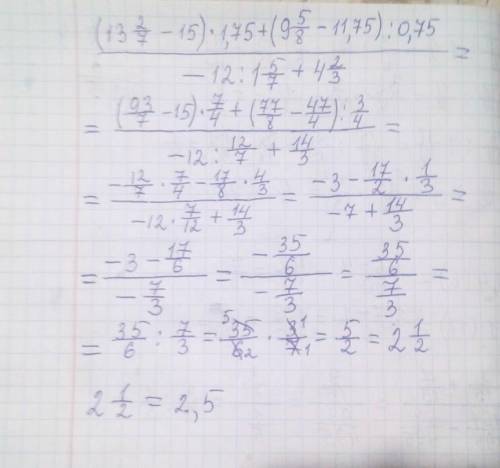 \frac{(13\frac{2}{7} - 15) \cdot 1,75 + (9\frac{5}{8} - 11,75) : 0,75}{-12 : 1\frac{5}{7} + 4\frac{2}{3}} =
= \frac{(\frac{93}{7} - 15) \cdot \frac{7}{4} + (\frac{77}{8} - \frac{47}{4}) : \frac{3}{4}}{-12 : \frac{12}{7} + \frac{14}{3}} =
= \frac{-\frac{12}{7} \cdot \frac{7}{4} - \frac{17}{8} \cdot \frac{4}{3}}{-12 \cdot \frac{7}{12} + \frac{14}{3}} = \frac{-3 - \frac{17}{2} \cdot \frac{1}{3}}{-7 + \frac{14}{3}} =
= \frac{-3 - \frac{17}{6}}{-\frac{7}{3}} = \frac{-\frac{35}{6}}{-\frac{7}{3}} = \frac{\frac{35}{6}}{\frac{7}{3}} =
= \frac{35}{6} : \frac{7}{3} = \frac{^{5}\cancel{35}}{\cancel{6}_{2}} \cdot \frac{\cancel{3}^{1}}{\cancel{7}_{1}} = \frac{5}{2} = 2\frac{1}{2}
2\frac{1}{2} = 2,5